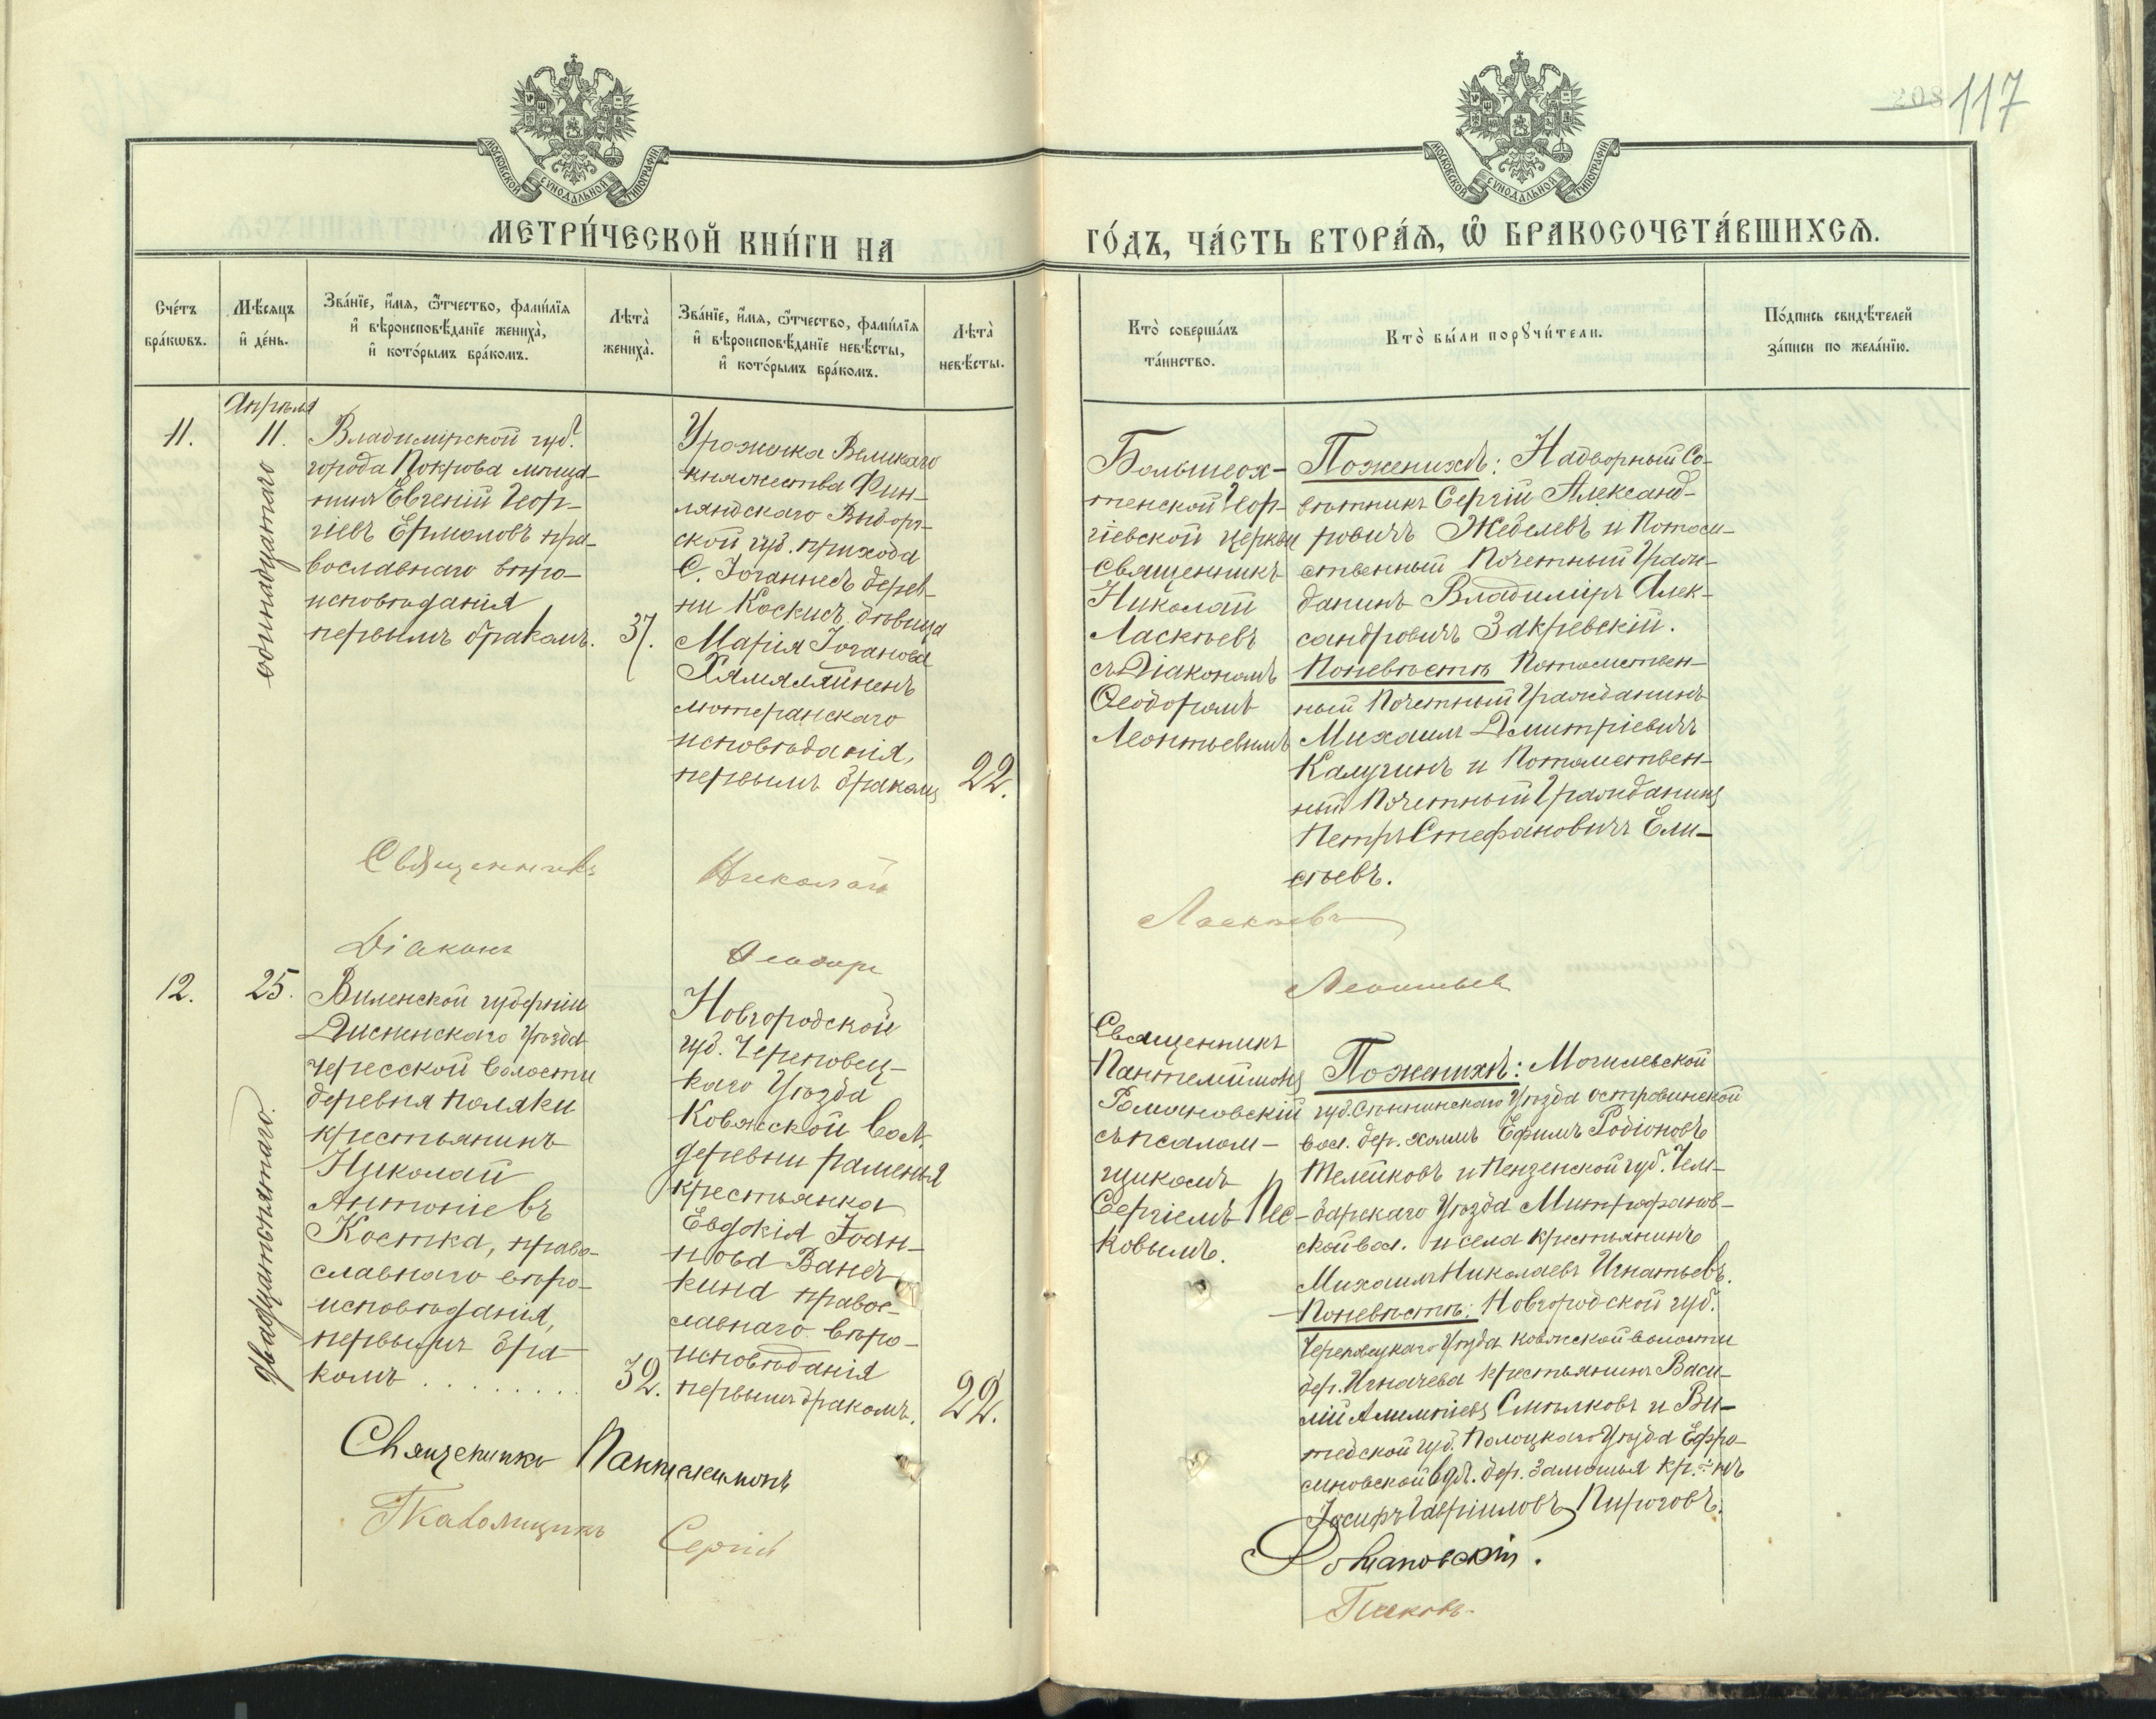 208 117
МОСКОВСКОЙ СѴНОДАЛЬНОЙ ТИПОГРАФІИ
МОСКОВСКОЙ СѴНОДАЛЬНОЙ ТИПОГРАФІИ
МЕТРИ́ЧЕСКОЙ КНИ́ГИ НА
ГО́ДЪ, ЧА́СТЬ ВТОРА́Я, Ѡ҃ БРАКОСОЧЕТА́ВШИХСѦ.
Сче́тъ
бра́кѡвъ.
Мѣ́сяцъ
и҆ де́нь.
Зва́нїе, и҆́мя, ѻ҆́тчество, фами́лїя
и҆ вѣроисповѣ́данїе жениха̀,
и҆ кото́рымъ бра́комъ.
Лѣта̀
жениха̀.
Зва́нїе, и҆́мя, ѻ҆́тчество, фами́лїя
и҆ вѣроисповѣ́данїе невѣ́сты,
и҆ кото́рымъ бра́комъ.
Лѣта̀
невѣ́сты.
Кто̀ соверша́лъ
та́инство.
Кто̀ бы́ли порꙋчи́тели.
По́дпись свидѣ́телей
за́писи по жела́нїю.
11.
Апрѣля
11.
одинадцатаго
Владимірской губ.
города Покрова мѣща-
нинъ Евгеній Геор-
гіевъ Ермоловъ пра-
вославнаго вѣро-
исповѣданія
первымъ бракомъ.
37.
Уроженка Великаго
княжества Фин-
ляндскаго Выборг-
ской губ. прихода
С. Іоганнесъ дерев-
ни Коскисъ дѣвица
Марія Іоганова
Хямяляйненъ
лютеранскаго
исповѣданія,
первымъ бракомъ
22.
Большеох-
тенской Геор-
гіевской церкви
священникъ
Николай
Ласкѣевъ
съ Діакономъ
Ѳеодоромъ
Леонтьевымъ
По женихѣ: Надворный Со-
вѣтникъ Сергій Александ-
ровичъ Жебелевъ и Потом-
ственный Почетный Граж-
данинъ Владиміръ Алек-
сандровичъ Закревскій.
По невѣстѣ Потомствен-
ный Почетный Гражданинъ
Михаилъ Дмитріевичъ
Калугинъ и Потомствен-
ный Почетный Гражданинъ
Петръ Стефановичъ Ели-
сѣевъ.
Священникъ Николай Ласкѣевъ
Діаконъ Ѳеодоръ Леонтьевъ
12.
25.
двадцатьпятаго.
Виленской губерніи
Дисненскаго Уѣзда
Чересской волости
деревня Поляки
крестьянинъ
Николай
Антоніевъ
Костка, право-
славнаго вѣро-
исповѣданія,
первымъ бра-
комъ . . . . . . . .
32.
Новгородской
губ. Череповец-
каго Уѣзда
Ковжской вол.
деревни раменья
крестьянка
Евдокія Іоан-
нова Ванч
кина правос-
лавнаго вѣро-
исповѣданія
первымъ бракомъ.
22.
Священникъ
Пантелеимонъ
Романовскій
съ псалом-
щикомъ
Сергіемъ Пес-
ковымъ.
По женихѣ: Могилевской
губ. Сѣннинскаго Уѣзда Островинской
вол. дер. холмъ Ефимъ Родіоновъ
и Пензенской губ. Чем-
барскаго Уѣзда Митрофанов-
ской вол. и села крестьянинъ
Михаилъ Николаевъ Игнатьевъ.
По невѣстѣ: Новгородской губ.
Череповецкаго Уѣзда ковжской волости
дер. Игначева крестьянинъ Васи-
лій Смѣлковъ и Ви-
тебской губ. Полоцкаго Уѣзда Ефро-
синовской вол. дер. Замошья кр.-нъ
Іосифъ Гавріиловъ Пироговъ.
Священникъ Пантелеимонъ Романовскій.
Псаломщикъ Сергій Песковъ.